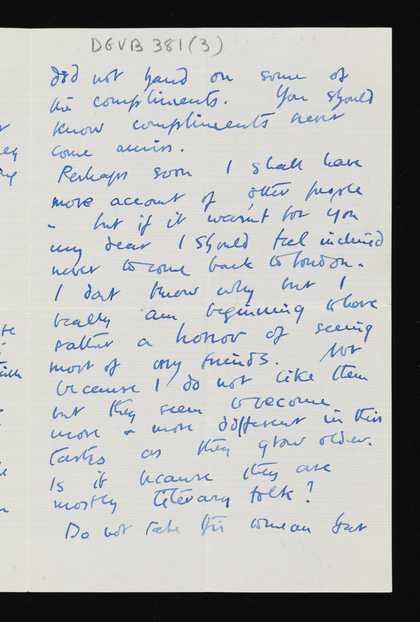 DGVB 381(3)
did not hand on some of
the compliments. You should
know compliments never
come amiss.
Perhaps soon I shall have
more account of other people
- but if it wasn't for you
my dear I should feel inclined
never to come back to London.
I dont know why but I
really am beginning to have
rather a horror of seeing
most of my friends. Not
because I do not like them
but they seem to become
more & more different in their
tastes as they grow older.
Is it because they are
mostly literary folk?
Do not take this to mean that